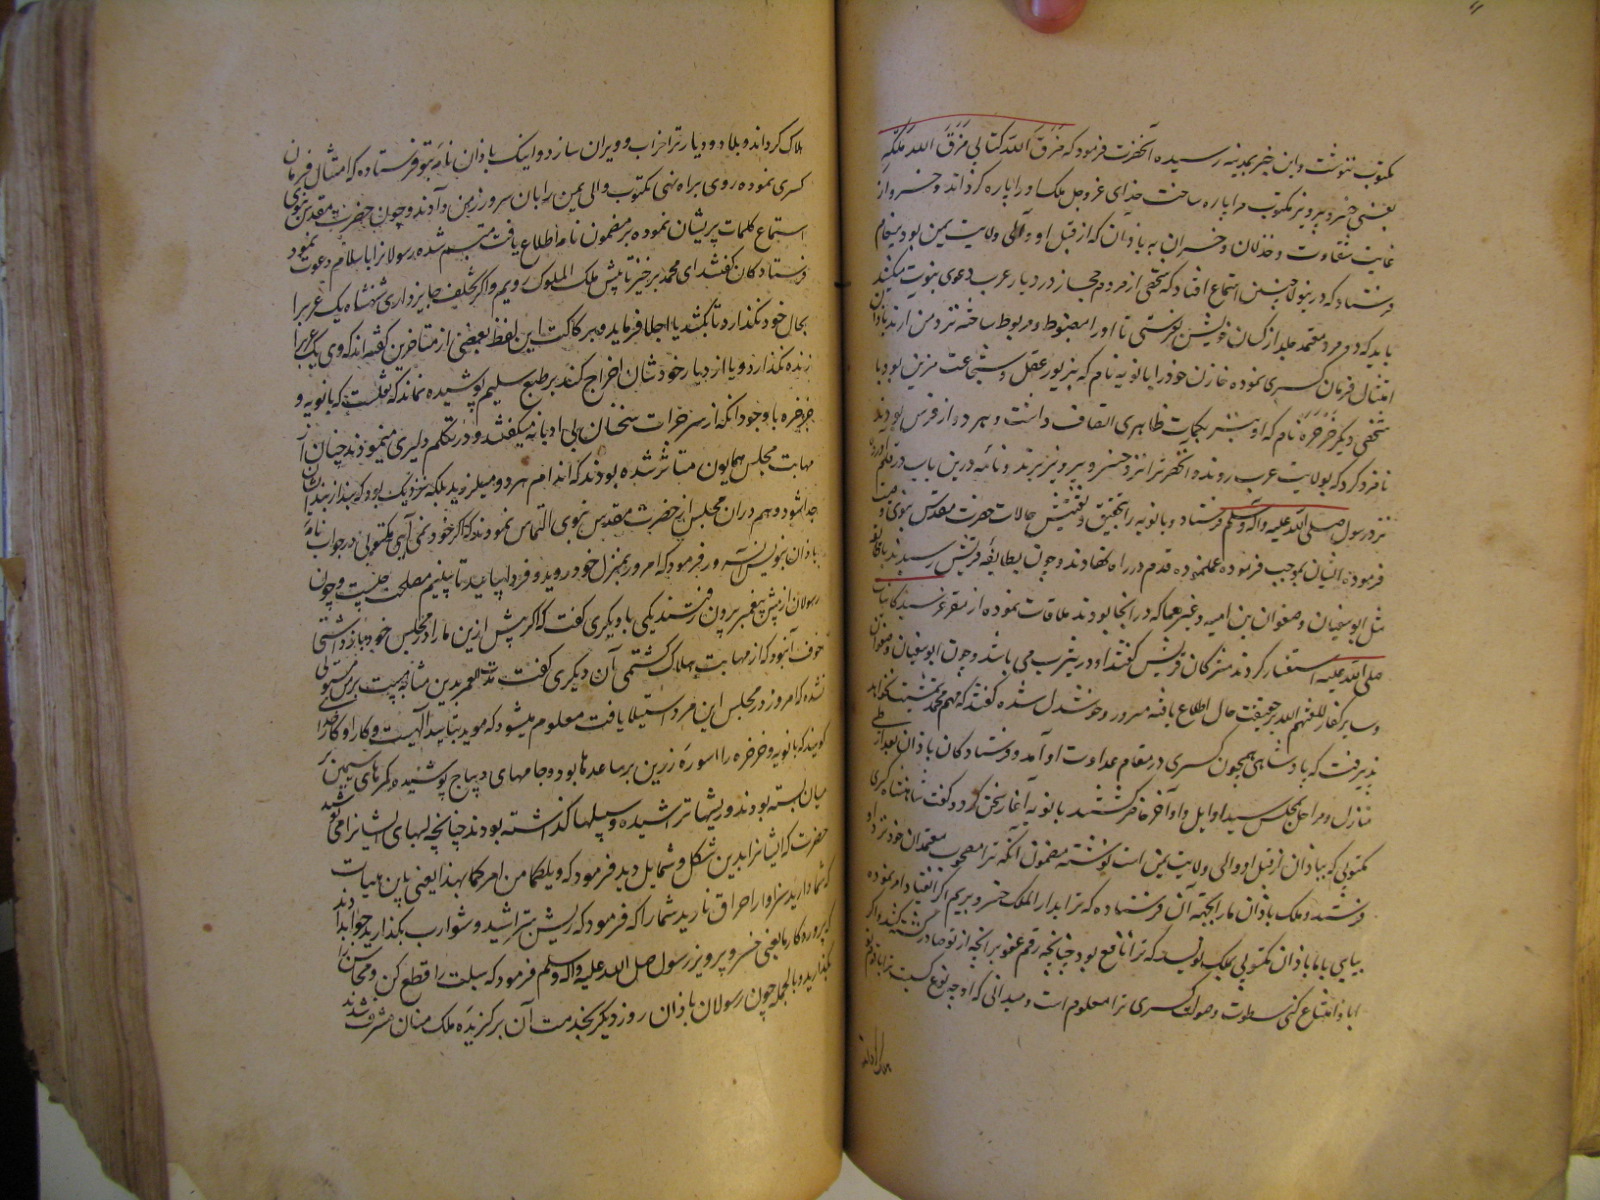 مکتوب ننوشت و این خبر بمدینه رسیده آنحضرت فرمود که مَزَقَ اللّه کتابی مَزَقَ اللّه مُلکَه
یعنی خسرو پرویز مکتوب مرا پاره ساخت خدای عز و جل ملک او را پاره گرداند و خسرو از
غایت شقاوت و خذلان و خسران به باذان که از قبل او والی ولایت یمن بود پیغام
فرستاد که درینولا چنین استماع افتاد که شخصی از مردم حجاز در دیار عرب دعوی نبوت میکند
باید که دو مرد معتمد جلد از کسان خویش بفرستی تا او را مضبوط و مربوط ساخته نزد من آرند باذان
امتثال فرمان کسری نموده خازن خود را بانویه نام که بزیور عقل و شجاعت مزین بود با
شخصی دیگر خرخره نام که او نیز بکمالات ظاهری اتصاف داشت و هر دو از فرس بودند
نامزد کرد که بولایت عرب روند و آنحضرت را نزد خسرو پرویز برند و نامه درین باب در قلم آورده
نزد رسول صلی اللّه علیه وآله وسلم فرستاد و بانویه را بتحقیق و تفتیش حالات حضرت مقدس نبوی وصیت
فرموده ایشان بموجب فرموده عمل نموده قدم در راه نهادند و چون بطایفه قریش رسیدند با طایفه
مثل ابوسفیان و صفوان بن امیه و غیرهما که در آنجا بودند ملاقات نموده از مقر عز سید کاینات
صلی اللّه علیه استفسار کردند مشرکان قریش گفتند او در یثرب می باشد و چون ابوسفیان و صفوان
و سایر کفار لعنهم اللّه بر حقیقت حال اطلاع یافته مسرور و خوشدل شده گفتند که مهم محمد تمشیت نخواهد
پذیرفت که پادشاهی همچون کسری در مقام عداوت او آمد و فرستادکان باذان بعد از طی
منازل و مراحل بمجلس سید اوایل و اواخر حاضر گشتند بانویه آغاز سخن کرد و گفت شاهنشاه کسری
مکتوبی که بباذان از قبل او والی ولایت یمن است نوشته مضمون آنکه ترا مصحوب معتمدان خود نزد او
فرستد و ملک باذان ما را بجهة آن فرستاده که ترا بدار الملک خسرو بریم اگر انقیاد امر نموده
بیایی با ما باذان مکتوبی بملک نویسد که ترا نافع بود چنانچه رقم عفو بر آنچه از تو صادر گشته کشد و اگر
ابا و امتناع کنی سطوت و صولت کسری ترا معلوم است و میدانی که او چه نوع کسیست
هلاک گرداند و بلاد و دیار ترا خراب و ویران سازد و اینک باذان نامه بتو فرستاده که امتثال فرمان
کسری نموده روی براه نهی مکتوب والی یمن را بآن سرور زمن دادند و چون حضرت مقدس نبوی
استماع کلمات پریشان نموده بر مضمون نامه اطلاع یافت متبسم شده رسولانرا باسلام دعوت نمود
فرستادکان گفتند ای محمد برخیز تا پیش ملک الملوک رویم و اگر تخلف جایز داری شهنشاه یک عرب را
بحال خود نگذارد تا بکشد یا اجلا فرماید و برکاکت این لفظ بعضی از متاخرین گفته اند که وی یک عرب را
زنده نگذارد و یا از دیار خودشان اخراج کند بر طبع سلیم پوشیده نماند که نقلست که بانویه و
خرخره با وجود آنکه از سر جرات سخنان بی ادبانه میگفتند و در تکلم دلیری مینمودند چنان از
مهابت مجلس همایون متاثر شده بودند که اندام هر دو میلرزید بلکه نزدیک بود که بند از بند ایشان
جدا شود و هم دران مجلس از حضرت مقدس نبوی التماس نمودند که اگر خود نمی آیی مکتوبی در جواب نامه
باذان بنویس آن سرور فرمود که امروز بمنزل خود روید و فردا بیایید تا ببینیم مصلحت چیست و چون
رسولان از پیش پیغمبر بیرون رفتند یکی با دیگری گفت که اگر پیش ازین ما را در مجلس خود باز داشتی
خوف آن بود که از مهابت هلاک گشتمی آن دیگری گفت که در مدت العمر بدین مثابه هیبت بر من مستولی
نشده که امروز در مجلس این مرد استیلا یافت معلوم میشود که موید بتایید الهیست و کار او کار خدا
گویند که بانویه و خرخره را اسوره زرین بر ساعدها بود و جامهای دیباج پوشیده کمرهای سیمین بر
میان بسته بودند و ریشها تراشیده و سبلها گذاشته بودند چنانچه لبهای ایشانرا می پوشید
حضرت که ایشانرا بدین شکل و شمایل دید فرمود که ویلکما من امرکما بهذا یعنی باین هیات
که شما دارید سزاوار احراق نارید شما را که فرمود که ریش بتراشید و شوارب بگذارید جواب دادند
که پروردگار ما یعنی خسرو پرویز رسول صلی اللّه علیه وآله وسلم فرمود که سبلت را قطع کن و محاسن را
بگذارید و بالجمله چون رسولان باذان روز دیگر بخدمت آن برگزیده ملک منان مشرف شدند